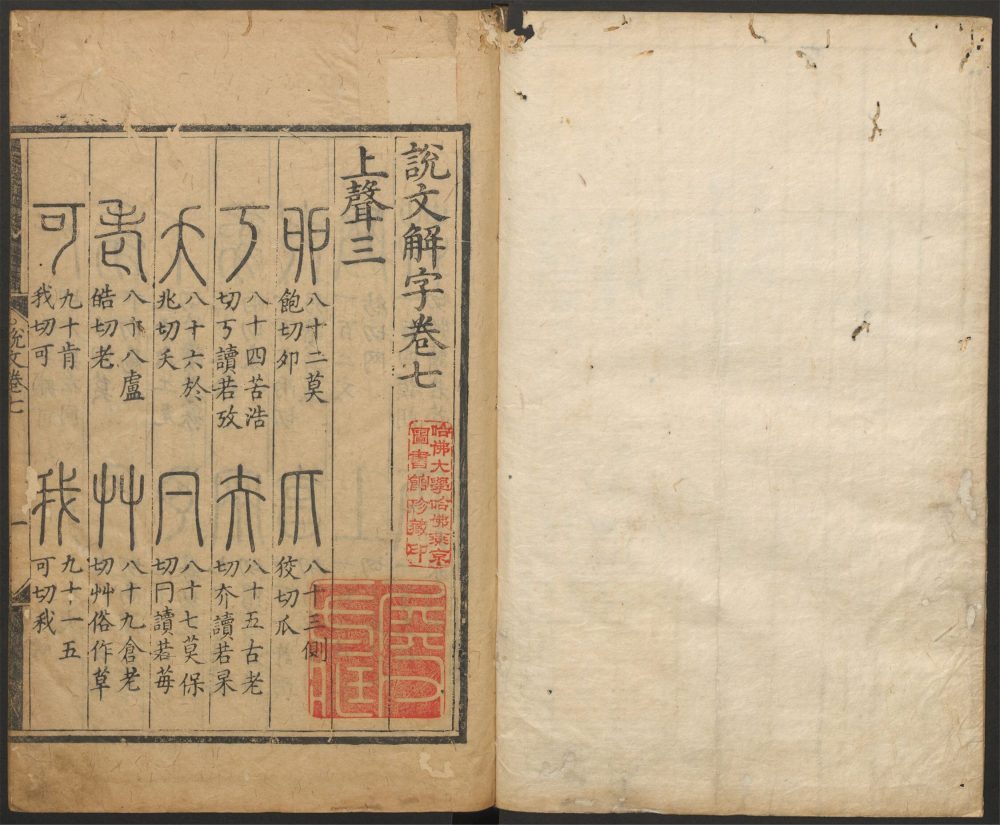 說文解字卷七
上聲三
卯
八十二莫
飽切卯
爪
八十三側
狡切爪
丂
八十四苦浩
切丂讀若攷
夰
八十五古老
切夰讀若杲
夭
八十六於
兆切夭
𠔼
八十七莫保
切𠔼讀若苺
老
八十八盧
皓切老
艸
八十九倉老
切艸俗作草
可
九十肯
我切可
我
九十一五
可切我
說文卷七
一
哈佛大學哈佛燕京
圖書館珍藏印